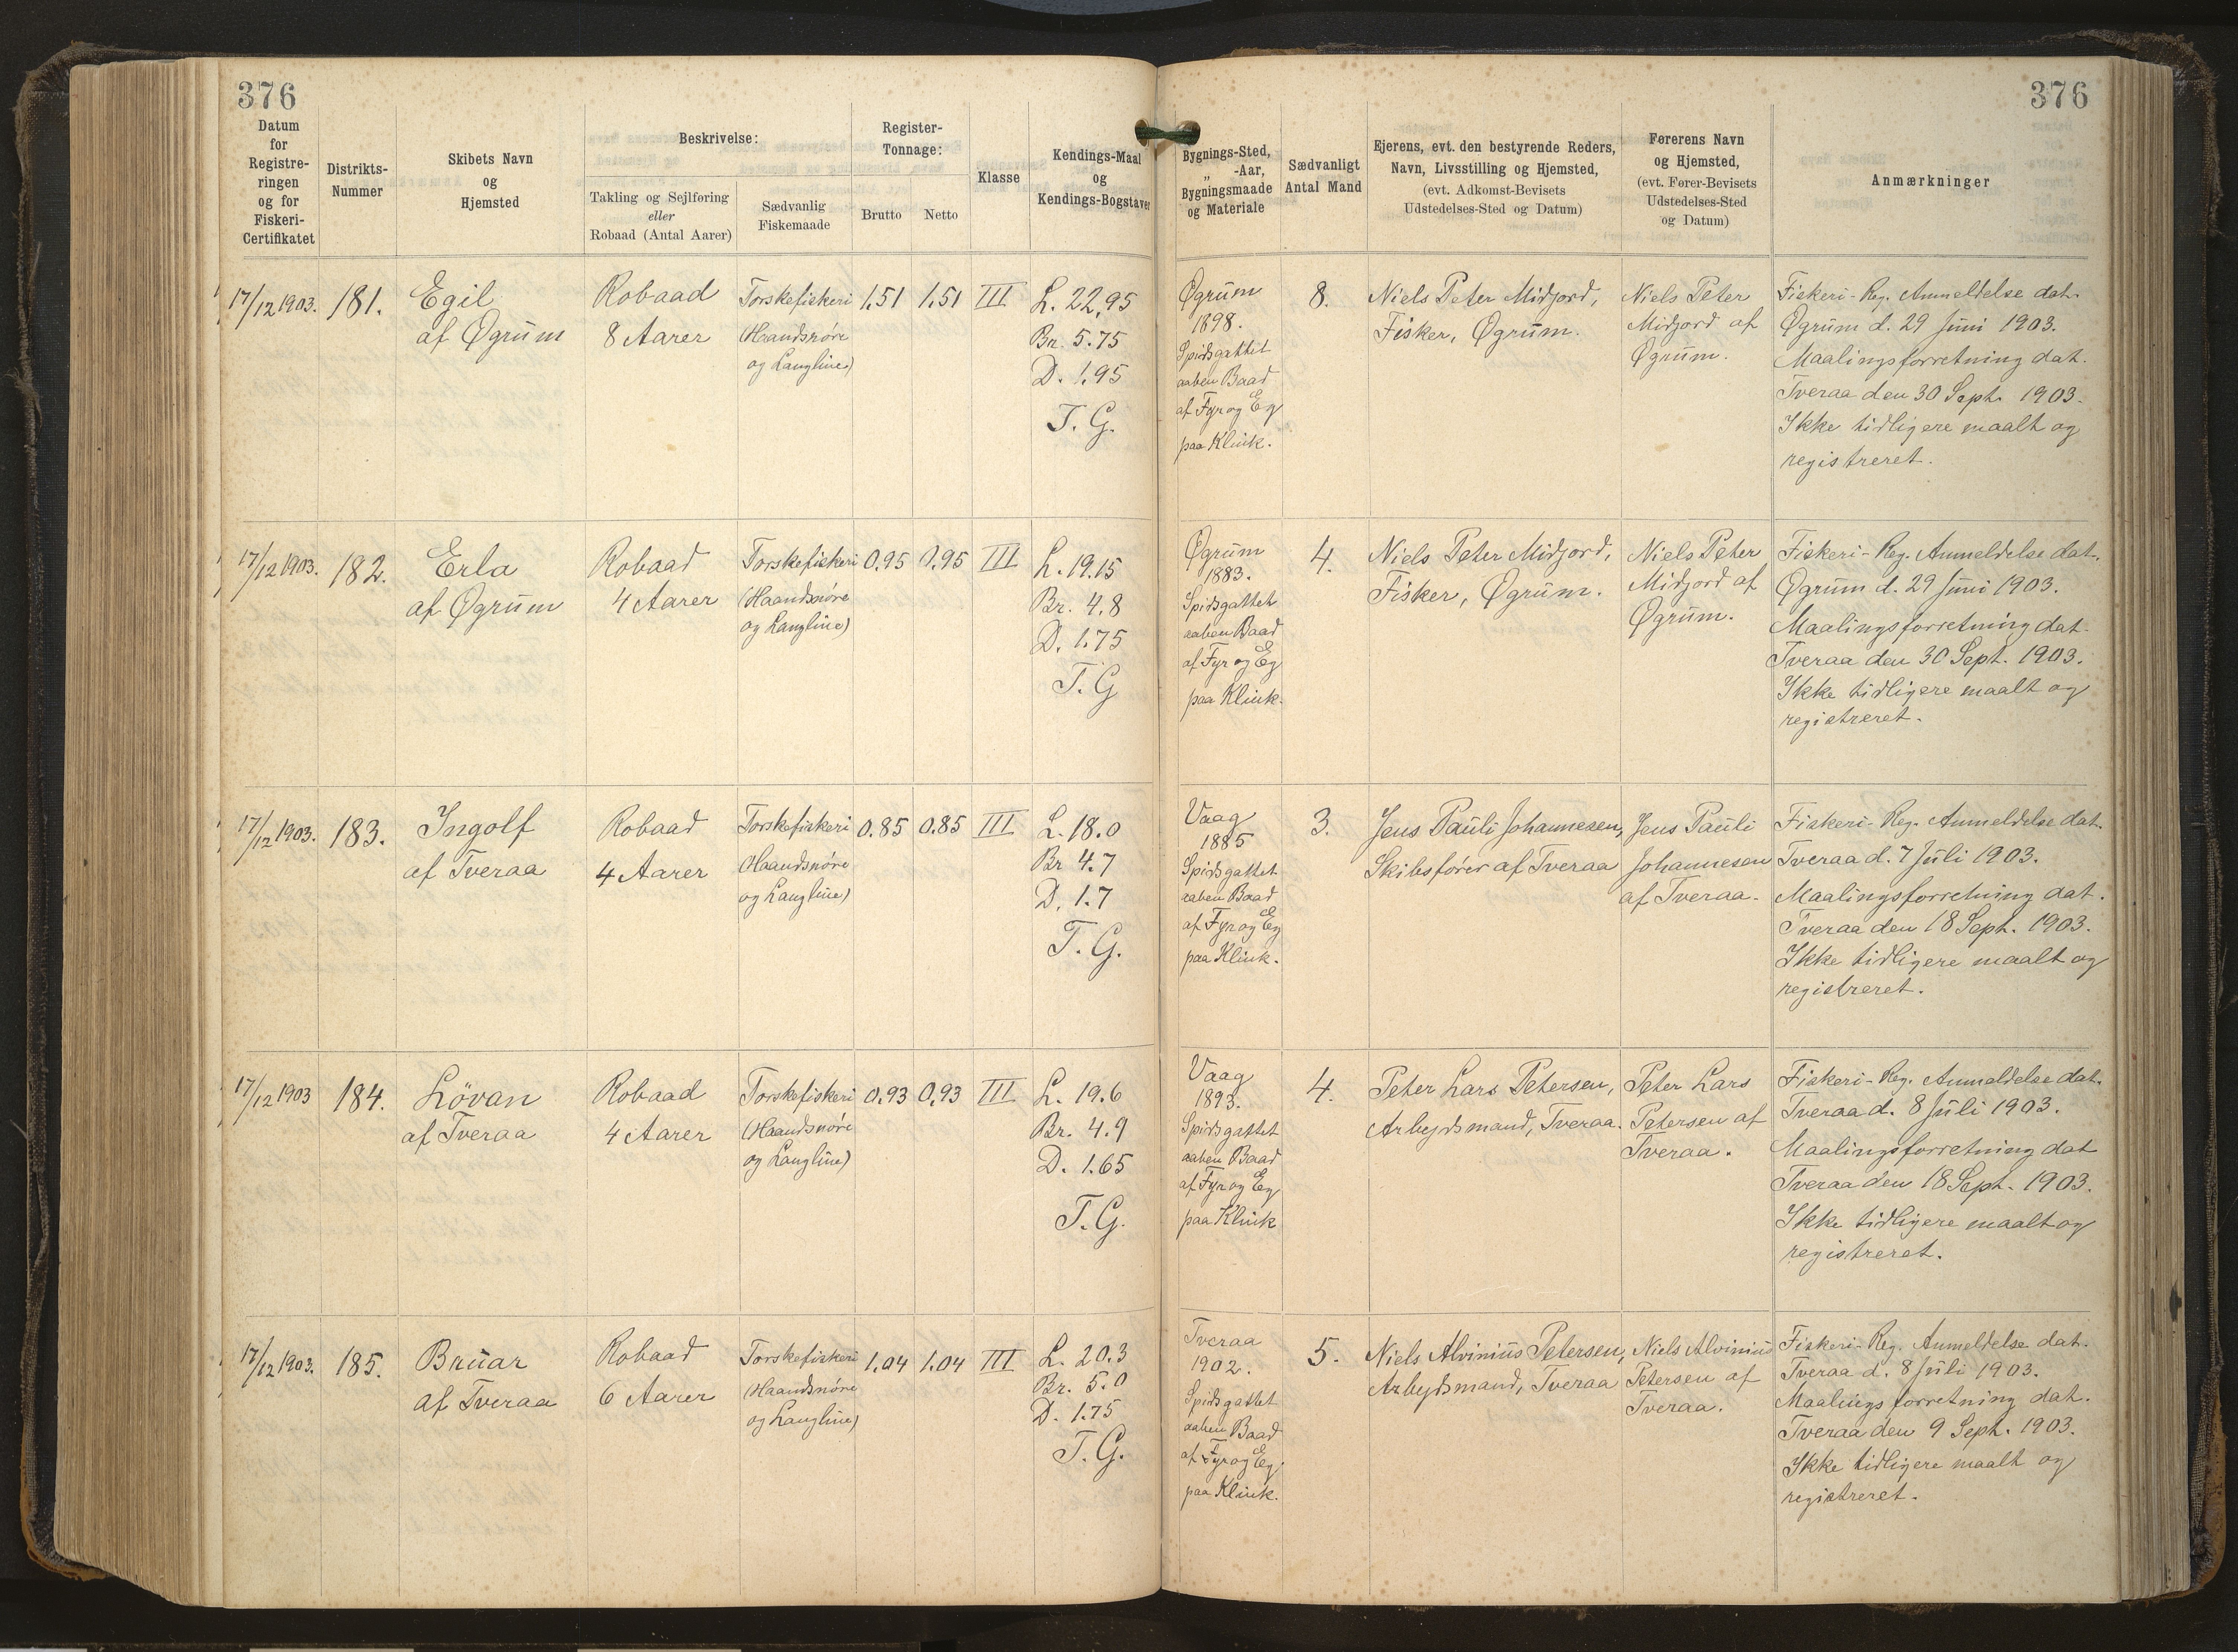 376
376
Datum
for
Registre-
ringen
og for
Fiskeri-
Certifikatet
Distrikts-
Nummer
Skibets Navn
og
Hjemsted
Beskrivelse:
Takling og Sejlføring
eller
Robaad (Antal Aarer)
Sædvanlig
Fiskemaade
Register-
Tonnage:
Brutto
Netto
Klasse
Kendings-Maal
og
Kendings-Bogstaver
Bygnings-Sted,
„ -Aar,
Bygningsmaade
og Materiale
Sædvanligt
Antal Mand
Ejerens, evt. den bestyrende Reders,
Navn, Livsstilling og Hjemsted,
(evt. Adkomst-Bevisets
Udstedelses-Sted og Datum)
Førerens Navn
og Hjemsted,
(evt. Fører-Bevisets
Udstedelses-Sted
og Datum)
Anmærkninger
17/12 1903.
181.
Egil
af Øgrum
Robaad
8 Aarer
Torskefiskeri
(Haandsnøre
og Langline)
1,51
1,51
III
L. 22,95
Br. 5.75
D. 1.95
T. G.
Øgrum
1898.
Spidsgattet
aaben Baad
af Fyr og Eg
paa Klink.
8.
Niels Peter Midjord,
Fisker, Øgrum.
Niels Peter
Midjord af
Øgrum.
Fiskeri-Reg. Anmeldelse dat.
Øgrum d. 29 Juni 1903.
Maalingsforretning dat.
Tveraa den 30 Sept. 1903.
Ikke tidligere maalt og
registreret.
17/12 1903.
182.
Erla
af Øgrum
Robaad
4 Aarer
Torskefiskeri
(Haandsnøre
og Langline)
0.95
0,95
III
L. 19.15
Br. 4.8
D. 1.75
T. G
Øgrum
1883.
Spidsgattet
aaben Baad
af Fyr og Eg
paa Klink.
4.
Niels Peter Midjord,
Fisker, Øgrum.
Niels Peter
Midjord af
Øgrum.
Fiskeri-Reg. Anmeldelse dat.
Øgrum d. 29 Juni 1903.
Maalingsforretning dat.
Tveraa den 30 Sept. 1903.
Ikke tidligere maalt og
registreret.
17/12 1903.
183.
Ingolf
af Tveraa
Robaad
4 Aarer
Torskefiskeri
(Haandsnøre
og Langline)
0.85
0,85
III
L. 18.0
Br 4.7
D. 1.7
T. G.
Vaag
1885
Spidsgattet
aaben Baad
af Fyr og Eg
paa Klink.
3.
Jens Pauli Johannesen,
Skibsfører af Tveraa
Jens Pauli
Johannesen
af Tveraa.
Fiskeri-Reg. Anmeldelse dat.
Tveraa d. 7 Juli 1903.
Maalingsforretning dat.
Tveraa den 18 Sept. 1903.
Ikke tidligere maalt og
registreret.
17/12 1903
184.
Lövan
af Tveraa
Robaad
4 Aarer
Torskefiskeri
(Haandsnøre
og Langline)
0,93
0,93
III
L. 19.6
Br. 4.9
D. 1.65
T. G.
Vaag
1893.
Spidsgattet
aaben Baad
af Fyr og Eg
paa Klink
4.
Peter Lars Petersen,
Arbejdsmand, Tveraa.
Peter Lars
Petersen af
Tveraa.
Fiskeri-Reg. Anmeldelse dat.
Tveraa d. 8 Juli 1903.
Maalingsforretning dat
Tveraa den 18 Sept. 1903.
Ikke tidligere maalt og
registreret.
17/12 1903.
185.
Bruar
af Tveraa
Robaad
6 Aarer
Torskefiskeri
(Haandsnøre
og Langline)
1.04
1.04
III
L. 20.3
Br. 5.0
D. 1.75
T. G.
Tveraa
1902.
Spidsgattet
aaben Baad
af Fyr og Eg
paa Klink.
5.
Niels Alvinius Petersen,
Arbejdsmand, Tveraa
Niels Alvinius
Petersen af
Tveraa.
Fiskeri-Reg. Anmeldelse dat.
Tveraa d. 8 Juli 1903.
Maalingsforretning dat.
Tveraa den 9 Sept. 1903.
Ikke tidligere maalt og
registreret.